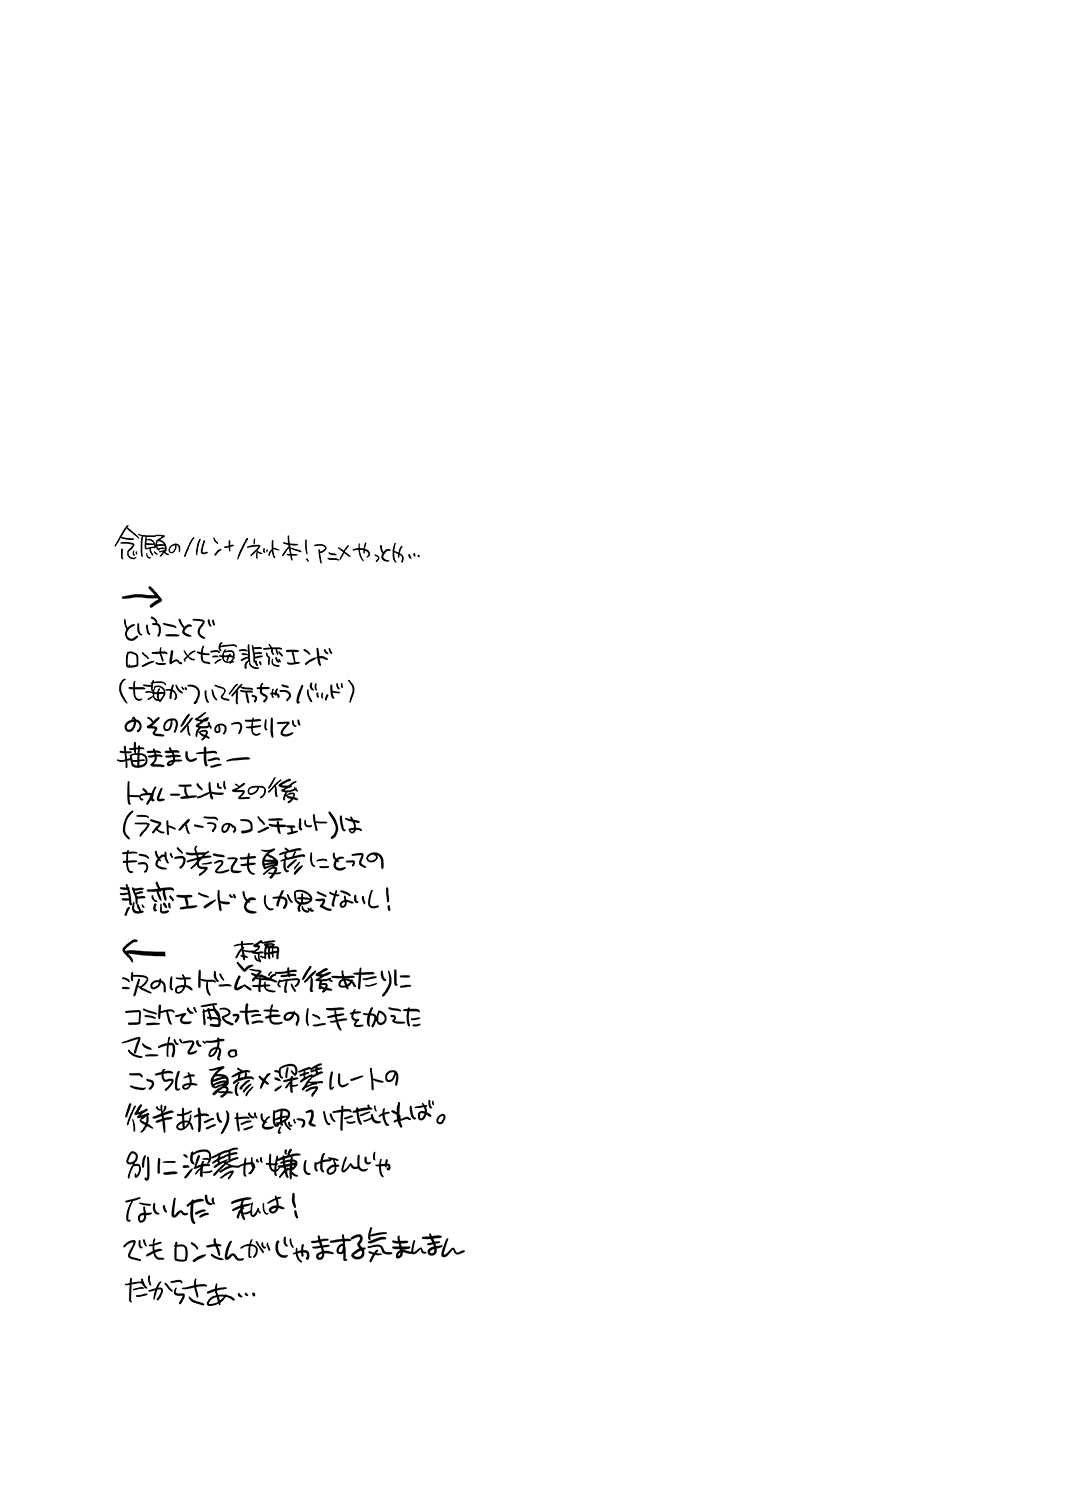 念願のノルン+ノネット本!アニメやっとや…
→
ということで
ロンさん×七海悲恋エンド
(七海がついて行っちゃうバッド)
のその後のつもりで
描きましたー
トゥルーエンドその後
(ラストイーラのコンチェルト)は
もうどう考えても夏彦にとっての
悲恋エンドとしか思えないし!
←
本編
次のはゲーム発売後あたりに
コミケで配ったものに手を加えた
マンガです。
こっちは夏彦×深琴ルートの
後半あたりだと思っていただければ。
別に深琴が嫌いなんじゃ
ないんだ 私は!
でもロンさんがじゃまする気まんまん
だからさあ…